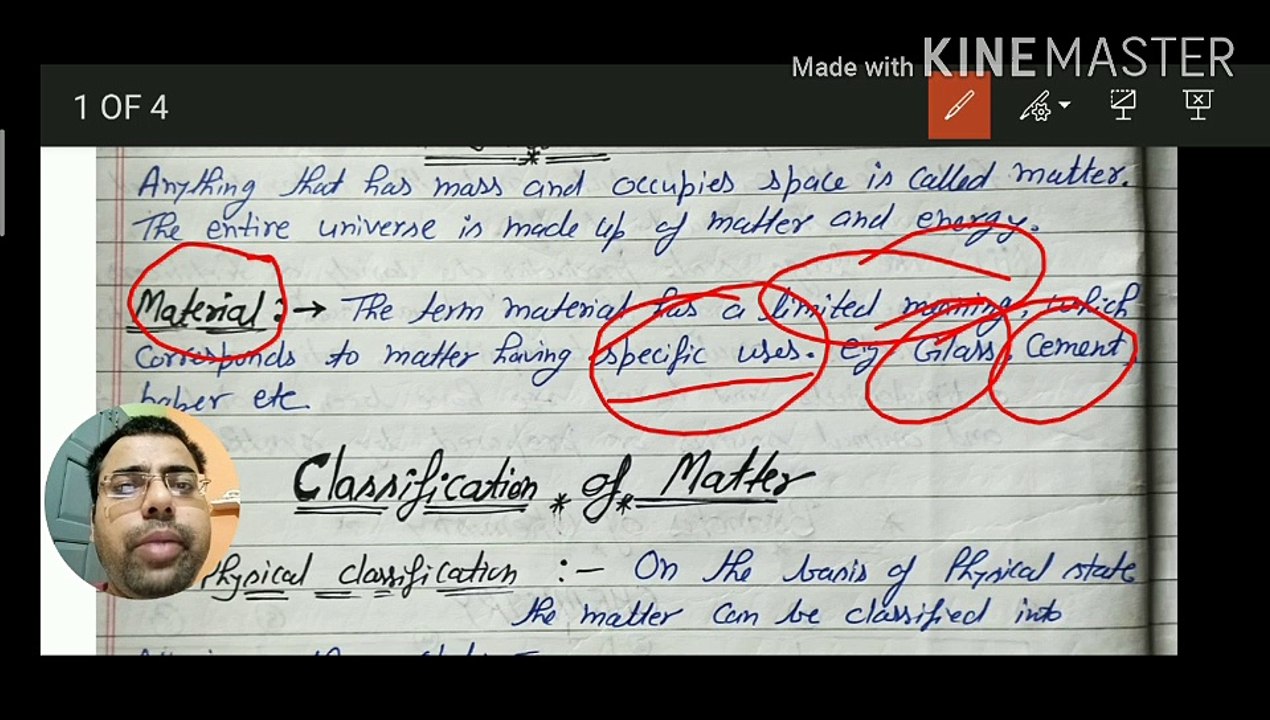 Made with KINEMASTER
1 OF 4
Anything that has mass and occupies space is called matter.
The entire universe is made up of matter and energy.
Material :→ The term material has a limited meaning, which
corresponds to matter having specific uses. eg Glass, Cement,
paper etc.
Classification of Matter
Physical classification :- On the basis of Physical state
the matter can be classified into